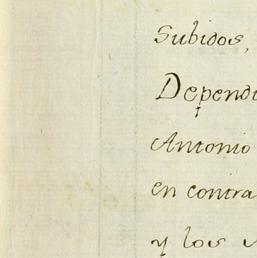 Subidos,
Dependi
Antonio
en contra
y los